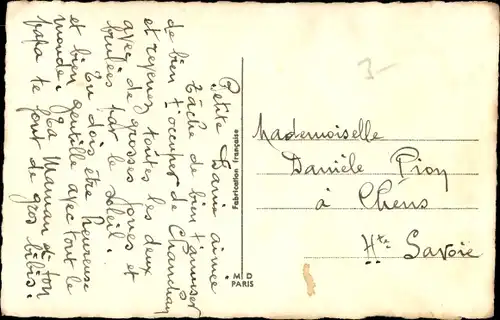 Petite Danie aimée
Tâche de bien t'amuser
de bien t'occuper de Chanchan
et revenez toutes les deux
avec de grosses joues et
brulées par le soleil.
Tu dois être heureuse
et bien gentille avec tout le
monde. Ta Maman et ton
papa te font de gros bibis.
Fabrication Française
M D
PARIS
3-
Mademoiselle
Danièle Pion
à Chens
Hte Savoie